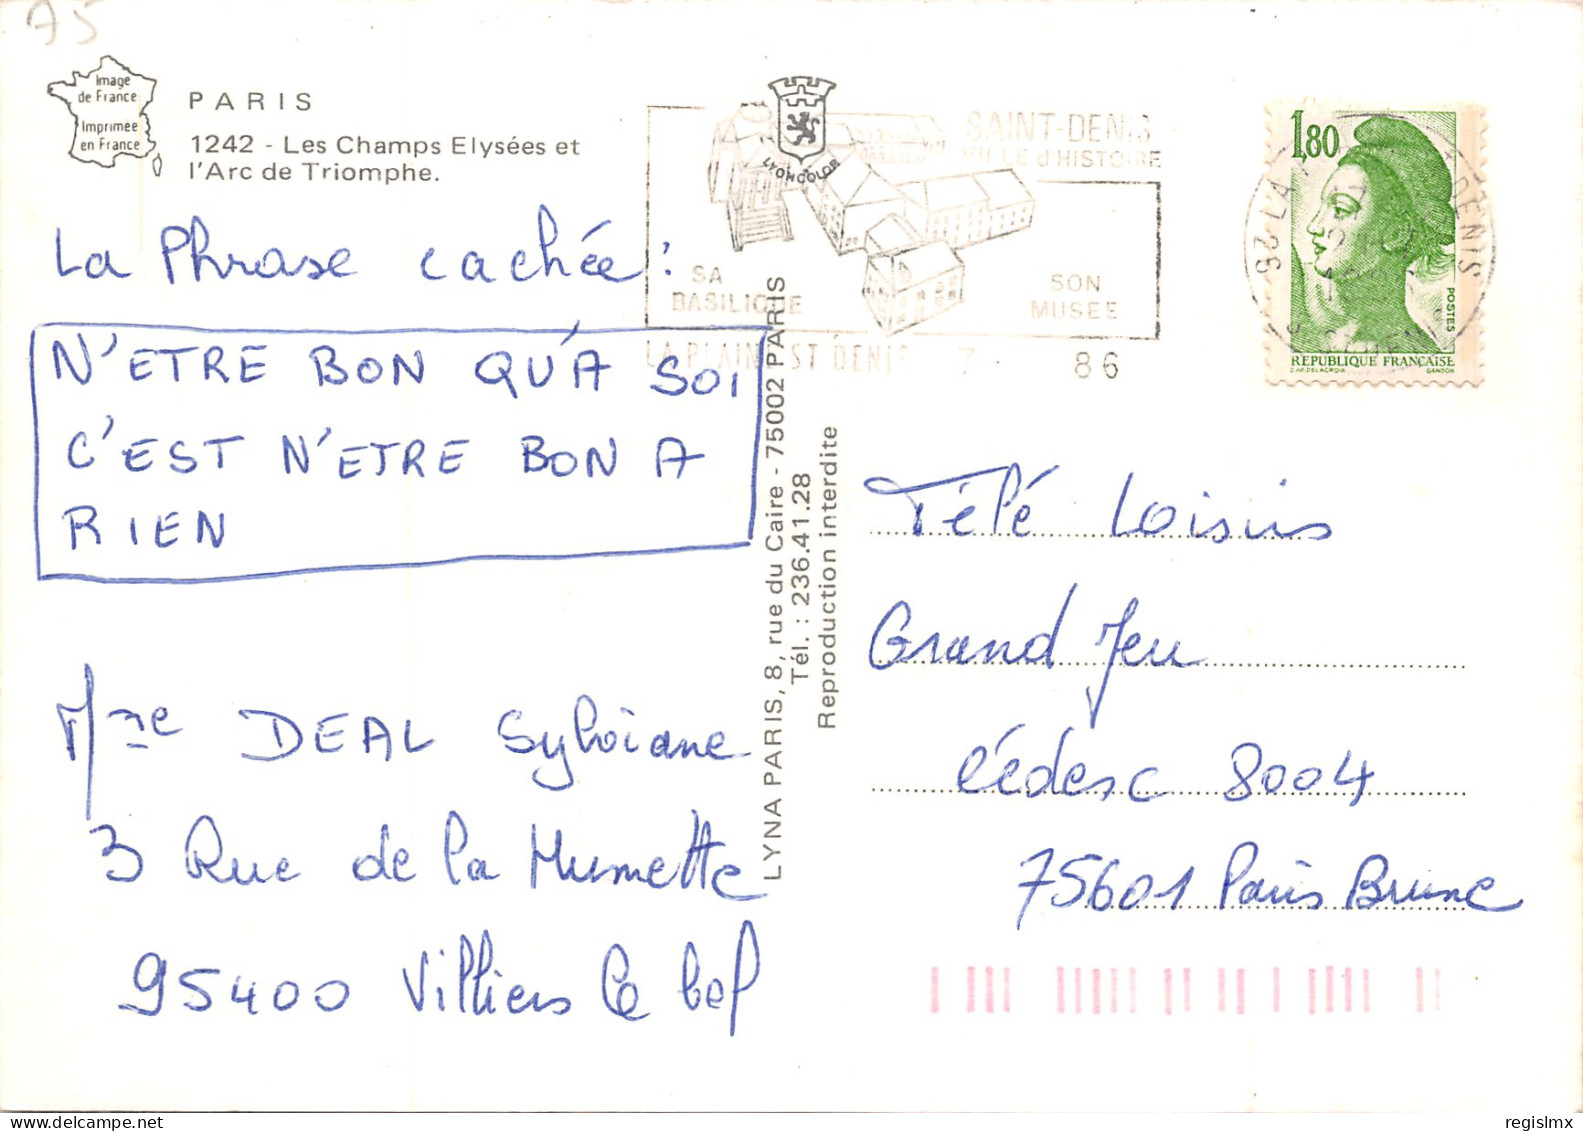 A5
Image
de France
Imprimée
en France
PARIS
1242 - Les Champs Elysées et
l'Arc de Triomphe.
La Phrase cachée :
N'ETRE BON QU'A SOI
C'EST N'ETRE BON A
RIEN
Mme DEAL Sylviane
3 Rue de la Mumette
95400 Villiers le bel
LYONCOLOR
SAINT-DENIS
VILLE d'HISTOIRE
SA
BASILIQUE
SON
MUSEE
LA PLAINE ST DENIS 7 86
LYNA PARIS, 8, rue du Caire - 75002 PARIS
Tél. : 236.41.28
Reproduction interdite
1,80
POSTES
REPUBLIQUE FRANÇAISE
D'AP. DELACROIX GANDON
Télé Loisirs
Grand Jeu
Cédesc 8004
75601 Paris Brune
regislmx